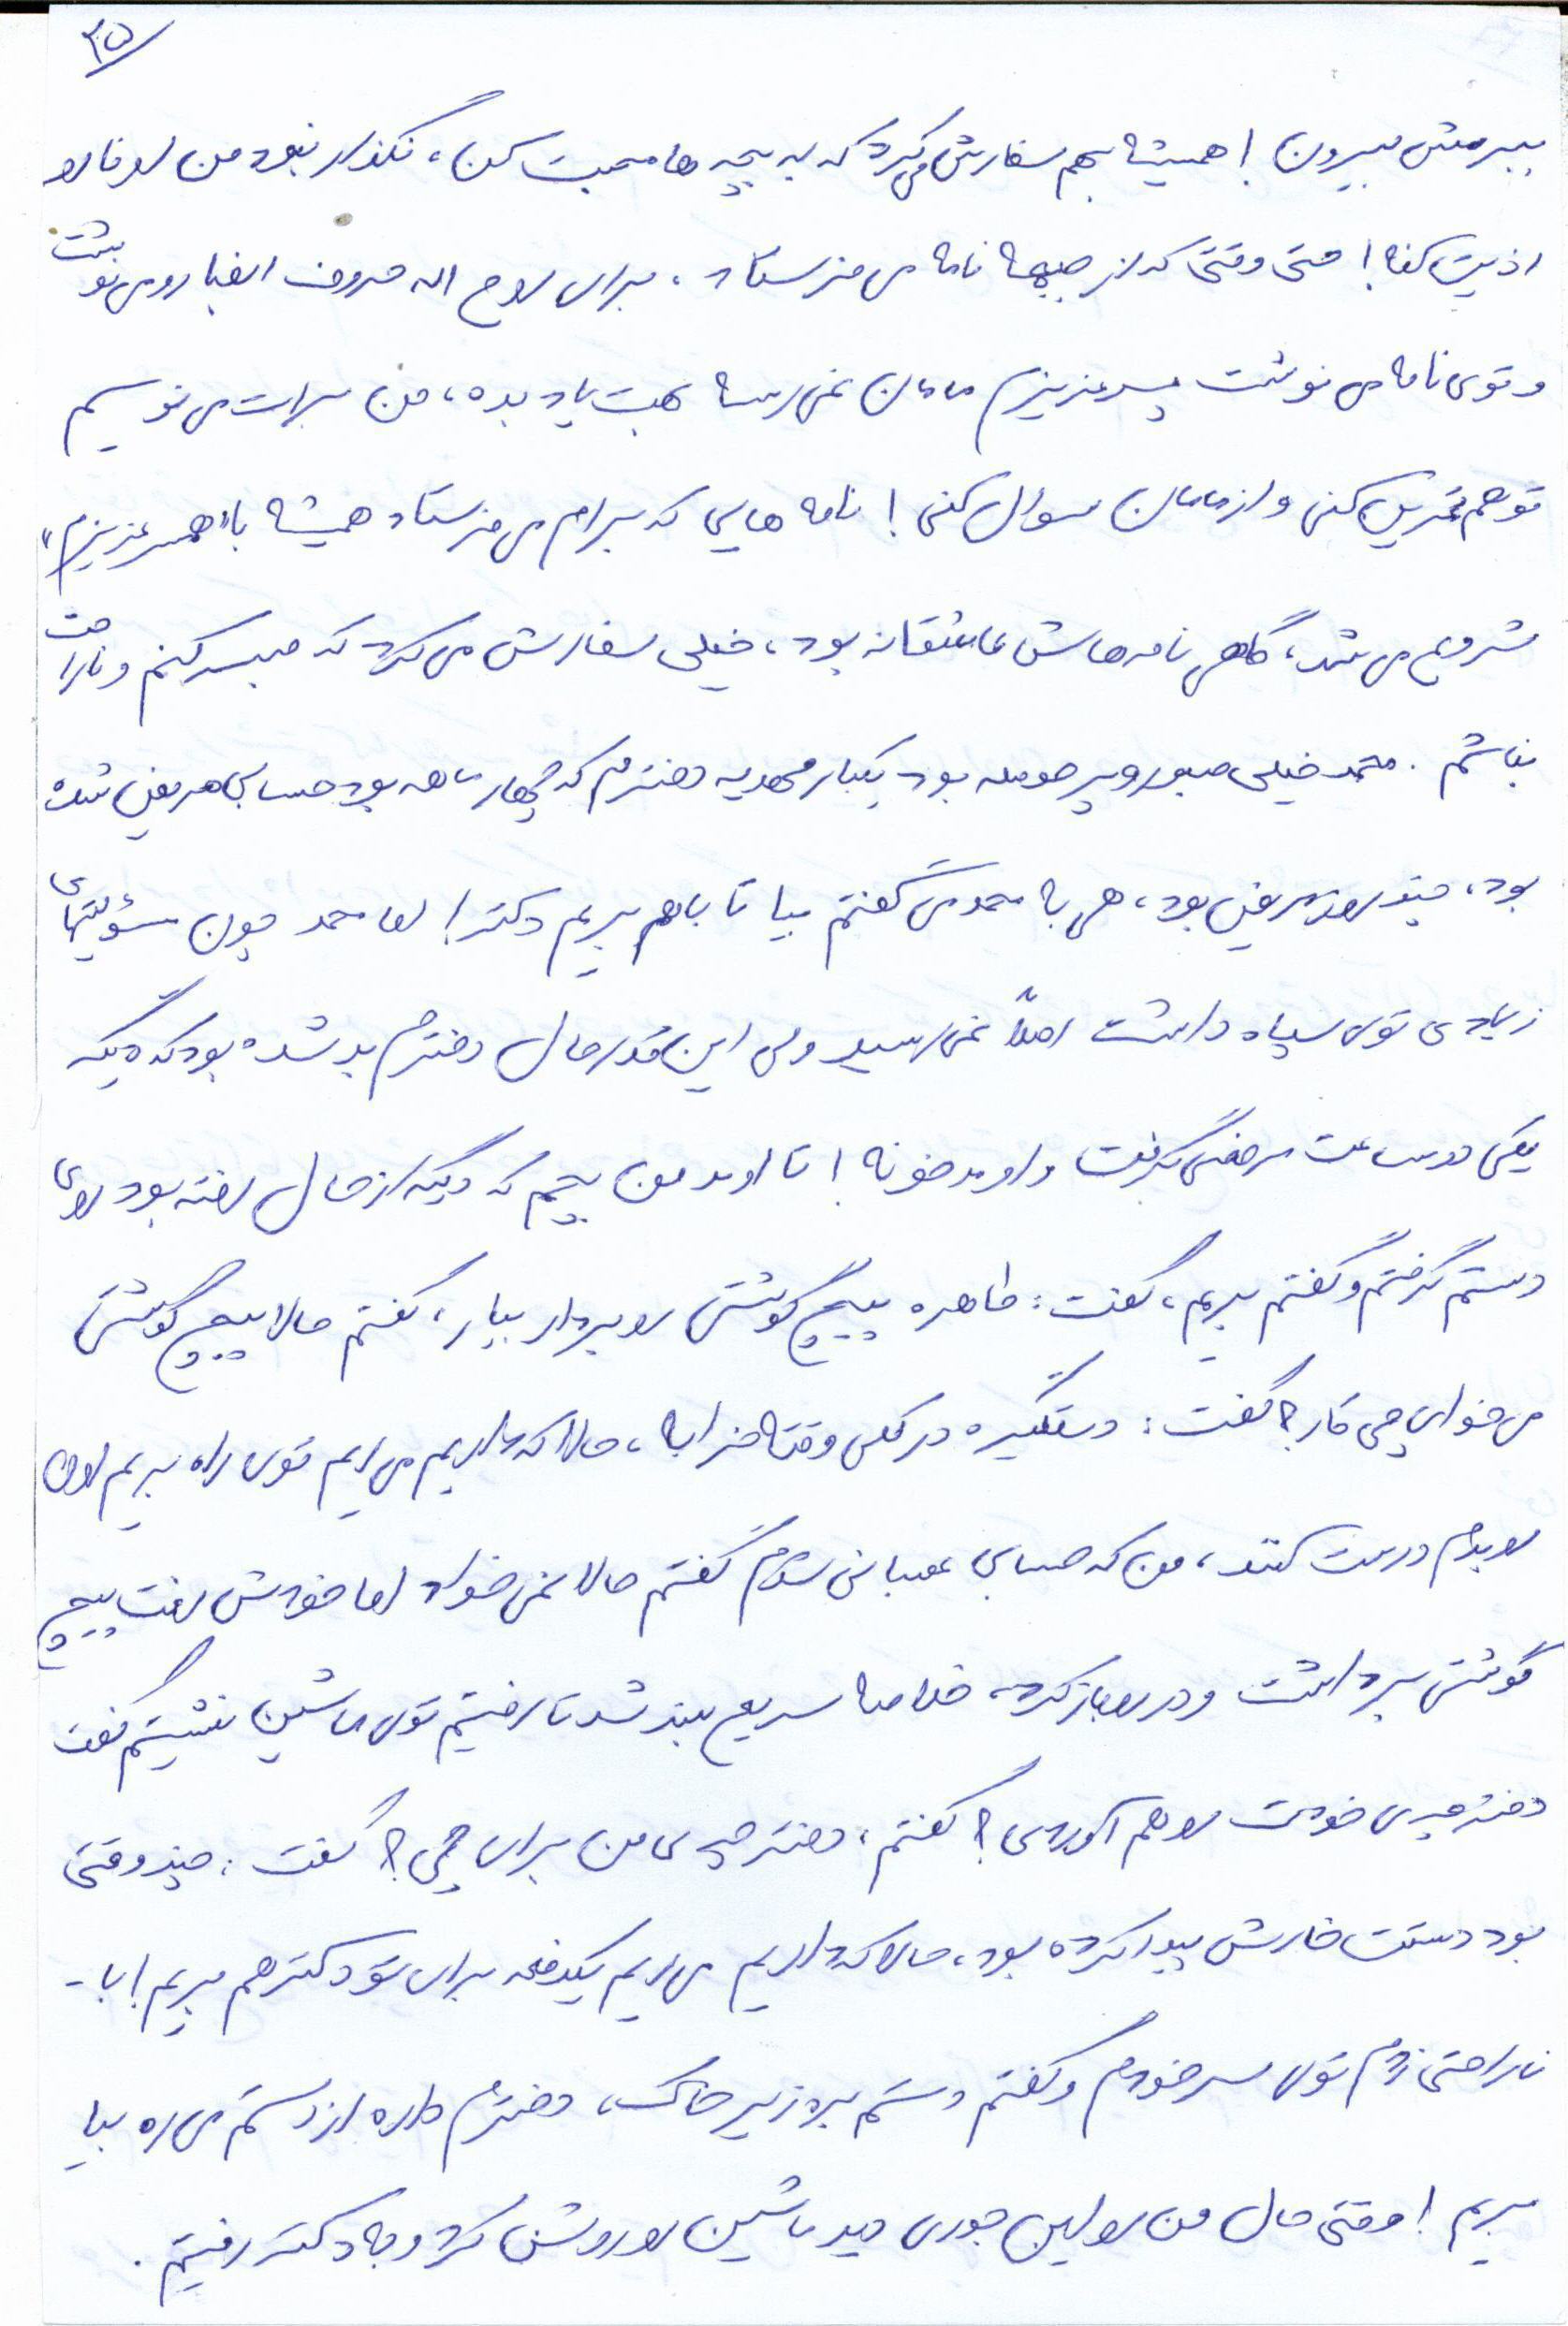 ۳۵
ببرمش بیرون! همیشه بهم سفارش می‌کرد که به بچه‌ها محبت کن، نگذار نبود من اونا رو
اذیت کنه! حتی وقتی که از جبهه نامه می‌فرستاد، برای روح اله حروف الفبا رو می‌نوشت
و توی نامه می‌نوشت پسر عزیزم مامان نمی‌رسه بهت یاد بده، من برات می‌نویسم
تو هم تمرین کنی و از مامان سوال کنی! نامه‌هایی که برام می‌فرستاد همیشه با "همسر عزیزم"
شروع می‌شد، گاهی نامه‌هاش عاشقانه بود، خیلی سفارش می‌کرد که صبر کنم و ناراحت
نباشم. محمد خیلی صبور و پر حوصله بود یکبار مهدیه دخترم که چهار ماهه بود حسابی مریض شده
بود، چند روز مریض بود، هی به محمد می‌گفتم بیا تا باهم بریم دکتر! اما محمد چون مسؤلیتهای
زیادی توی سپاه داشت اصلاً نمی‌رسید ولی این قدر حال دخترم بد شده بود که دیگه
یکی دو ساعت مرخصی گرفت و اومد خونه! تا اومد من بچم که دیگه از حال رفته بود روی
دستم گرفتم و گفتم بریم، گفت: طاهره پیچ گوشتی رو بردار بیار، گفتم حالا پیچ گوشتی
می‌خوای چی کار؟ گفت: دستگیره در کلی وقته خرابه، حالا که داریم می‌ریم توی راه بریم اون
رو بدم درست کنند، من که حسابی عصبانی شدم گفتم حالا نمی‌خواد اما خودش رفت پیچ
گوشتی برداشت و در رو باز کرد، خلاصه سریع بلند شد تا رفتیم توی ماشین نشستیم گفت
دفترچه‌ی خودت رو هم آوردی؟ گفتم، دفترچه‌ی من برای چی؟ گفت: چند وقتی
بود دستت خارش پیدا کرده بود، حالا که داریم می‌ریم یکدفعه برای تو دکتر هم بریم! با-
ناراحتی زدم توی سر خودم و گفتم دستم بره زیر خاک، دخترم داره از دستم می‌ره بیا
بریم! وقتی حال من رو این جوری دید ماشین رو روشن کرد و به دکتر رفتیم.